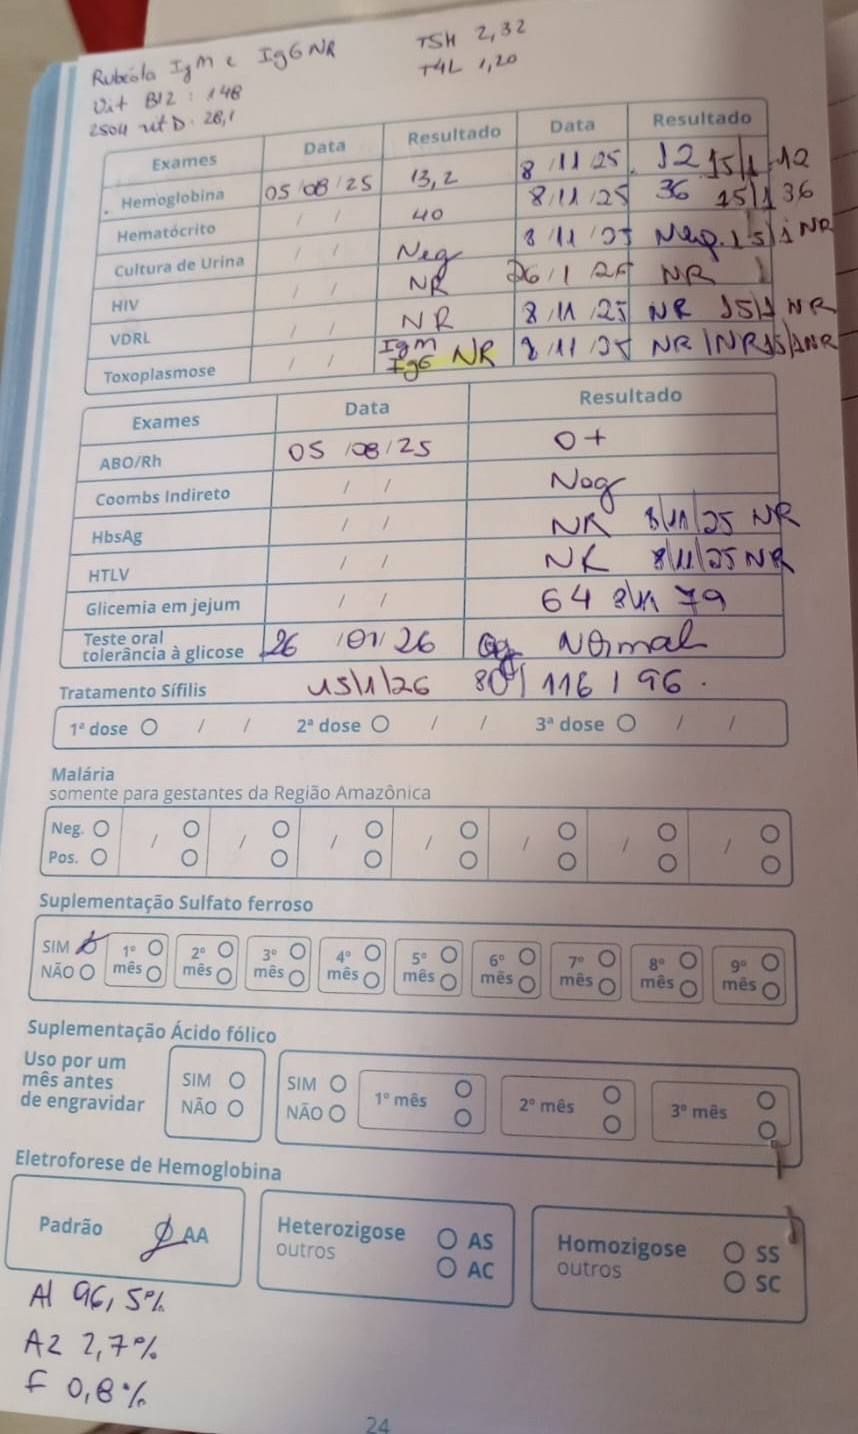 Rubéola IgM e IgG NR TSH 2,32
Vit B12: 148 T4L 1,20
25OH vit D: 28,1
Exames Data Resultado Data Resultado
Hemoglobina 05/08/25 13,2 8/11/25 12 15/1 12
Hematócrito / / 40 8/11/25 36 15/1 36
Cultura de Urina / / Neg 8/11/25 Neg. 15/1 NR
HIV / / NR 26/1 NR
VDRL / / NR 8/11/25 NR 15/1 NR
Toxoplasmose / / IgM IgG NR 8/11/25 NR/NR 15/1 NR
Exames Data Resultado
ABO/Rh 05/08/25 O+
Coombs Indireto / / Neg
HbsAg / / NR 8/11/25 NR
HTLV / / NR 8/11/25 NR
Glicemia em jejum / / 64 8/11 79
Teste oral
tolerância à glicose 26/01/26 Normal
Tratamento Sífilis 15/1/26 80/116/96.
1ª dose / / 2ª dose / / 3ª dose / /
Malária
somente para gestantes da Região Amazônica
Neg. / / / / / / /
Pos.
Suplementação Sulfato ferroso
SIM 1º 2º 3º 4º 5º 6º 7º 8º 9º
NÃO mês mês mês mês mês mês mês mês mês
Suplementação Ácido fólico
Uso por um
mês antes SIM SIM 1º mês 2º mês 3º mês
de engravidar NÃO NÃO
Eletroforese de Hemoglobina
Padrão AA Heterozigose AS Homozigose SS
outros AC outros SC
A1 96,5%
A2 2,7%
F 0,8%
24